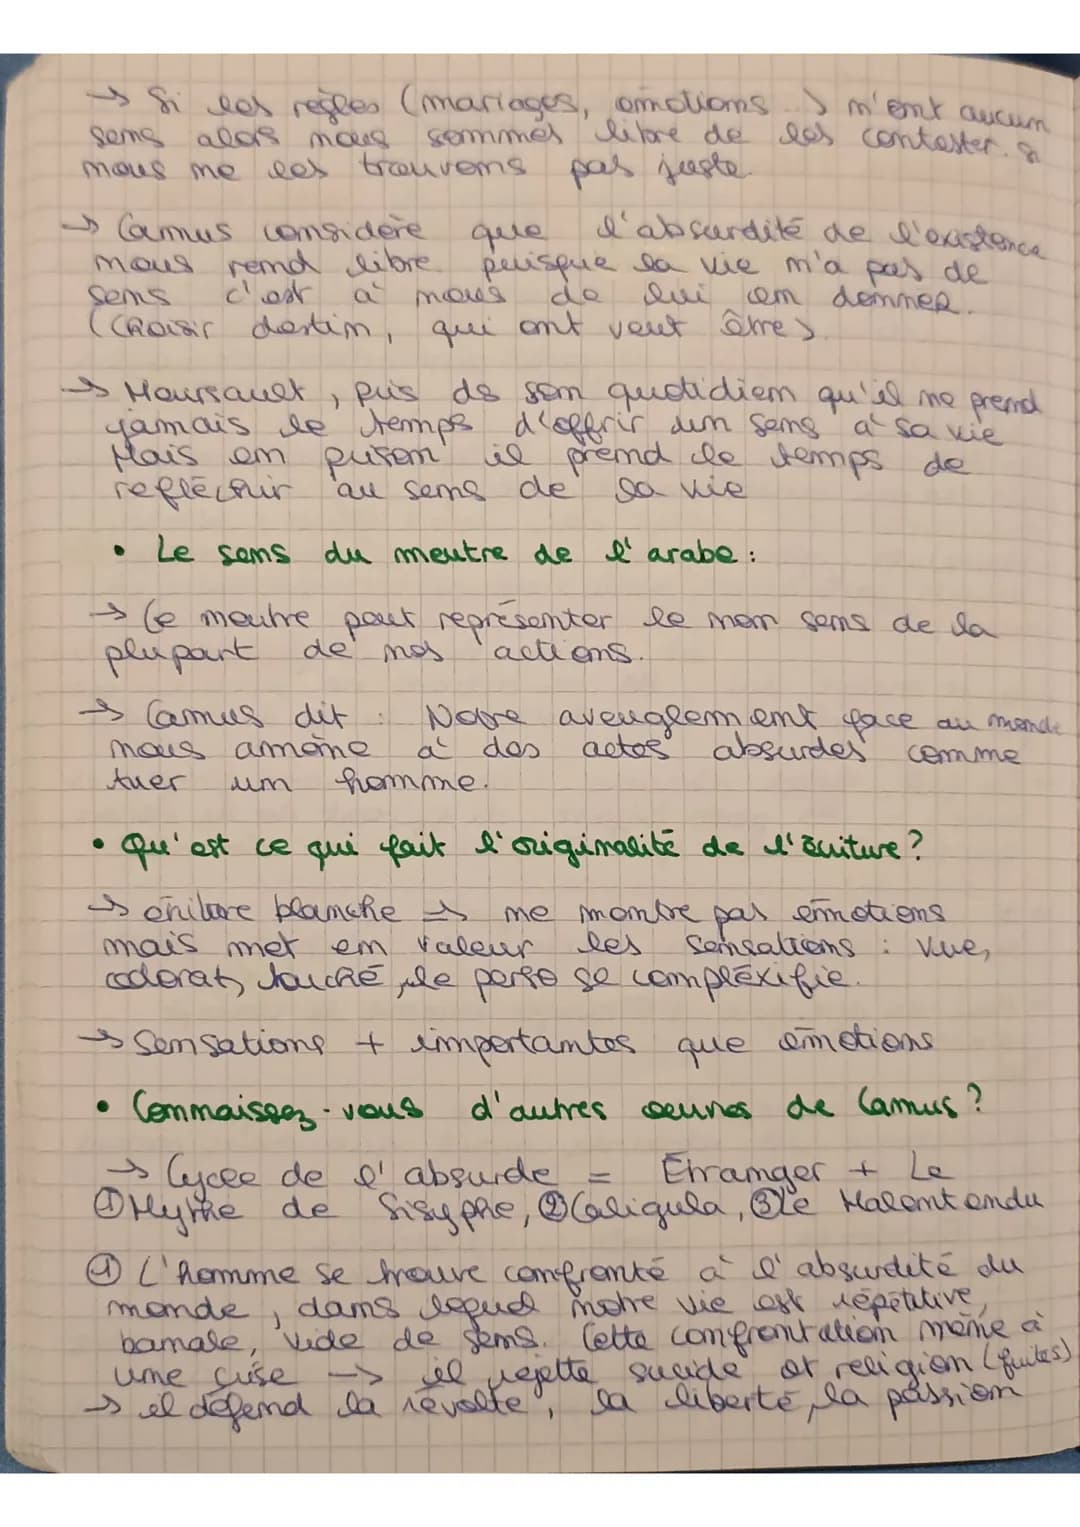 → Si les règles (mariages, émotions...) n'ont aucun
sens alors nous sommes libre de les contester. si
nous ne les trouvons pas juste.
→ Camus considère que l'absurdité de l'existence
nous rend libre puisque la vie n'a pas de
sens c'est à nous de lui en donner.
(Choisir destin, qui ont veut être)
→ Meursault, pris de son quotidien qu'il ne prend
jamais le temps d'offrir un sens à sa vie
Mais en prison il prend le temps de
refléchir au sens de sa vie
• Le sens du meutre de l'arabe :
→ Ce meutre peut représenter le non sens de la
plupart de nos actions.
→ Camus dit : Notre aveuglement face au monde
nous amène à des actes absurdes comme
tuer un homme.
• Qu'est ce qui fait l'originalité de l'écriture ?
→ écriture blanche → ne montre pas émotions
mais met en valeur les sensations : vue,
odorat, touché, le perso se compléxifie.
→ Sensations + importantes que émotions
• Connaissez-vous d'autres oeuvres de Camus ?
→ Cycle de l'absurde = Étranger + Le
① Mythe de Sisyphe, ② Caligula, ③ Le Malentendu
① L'homme se trouve confronté à l'absurdité du
monde, dans lequel notre vie est répétitive,
banale, vide de sens. Cette confrontation mène à
une crise → il rejette suicide et religion (fuites)
→ il défend la révolte, la liberté, la passion